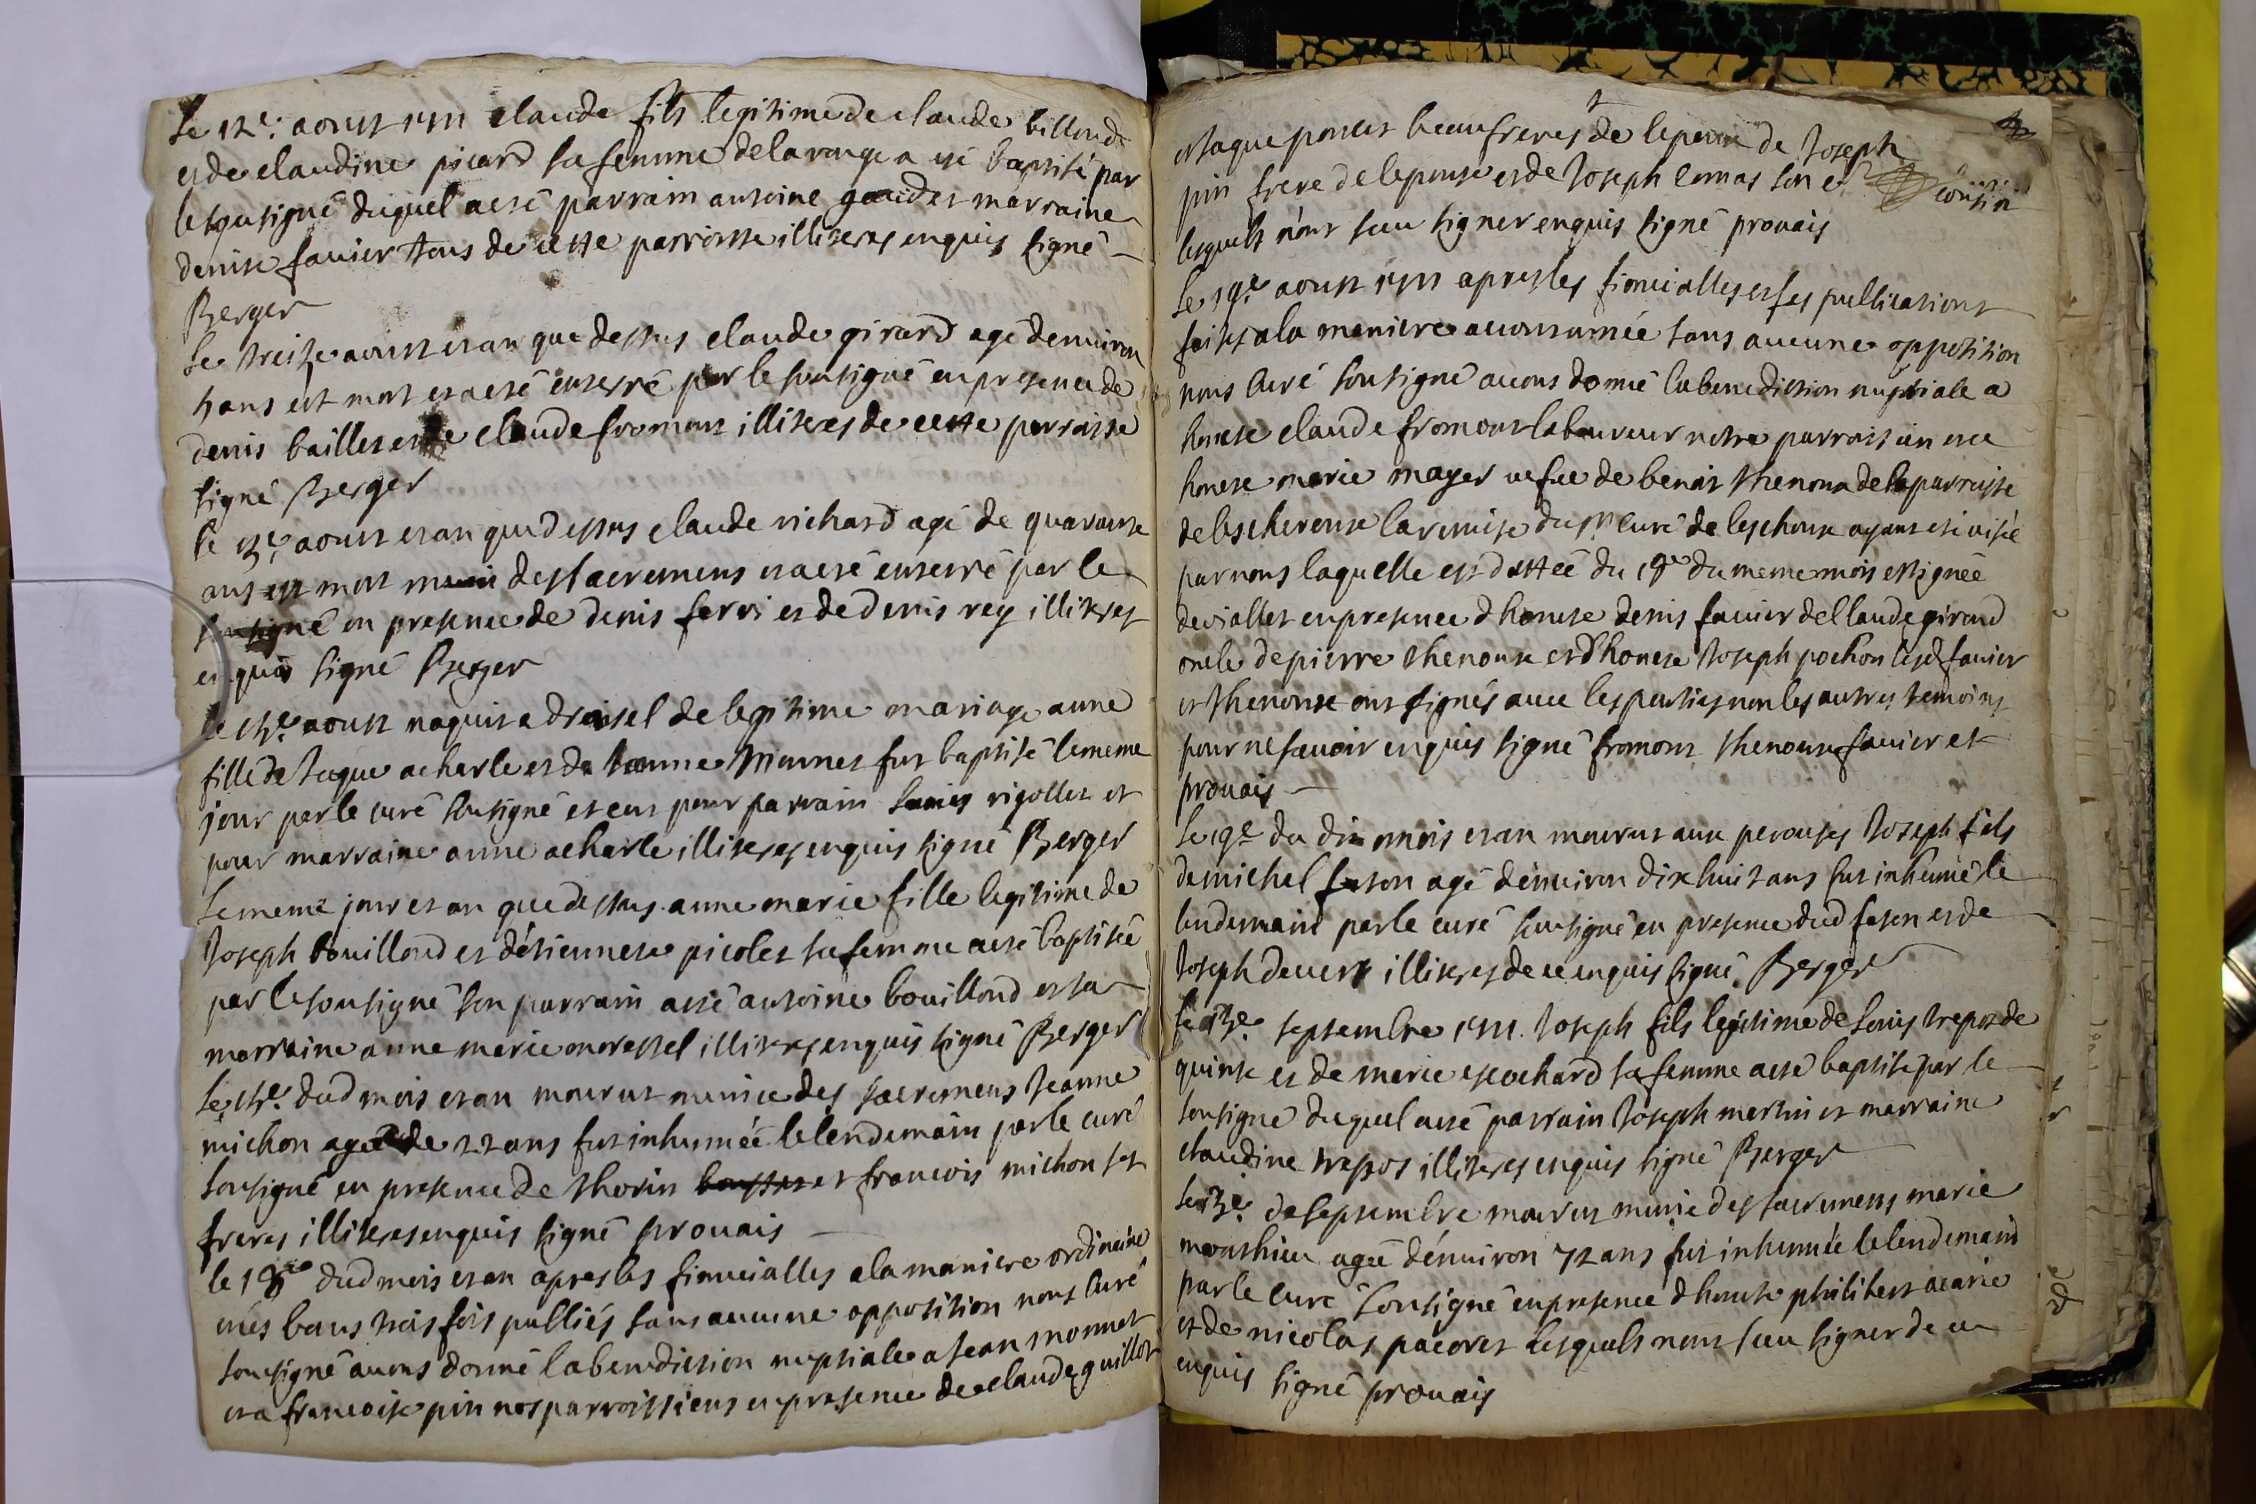 le 12e. aoust 1711 claude fils legitime de claude billoud
et de claudine picard sa femme de la rouge a esté baptisé par
le soutsigné duquel a esté parrain antoine goudet marraine
denise favier tous de cette parroisse illiteres enquis signé
Berger
le treize aoust et an que dessus claude girard agé denviron
hans est mort et a esté enterré par le soutsigné en presence de
denis baillet et de claude fromont illiteres de cette parroisse
signé Berger
le 13e. aoust et an que dessus claude richard agé de quarante
ans est mort muni des sacremens et a esté enterré par le
soutsigné en presence de denis ferri et de denis rey illiteres
enquis signé Berger
le 15e. aoust naquit a droissel de legitime mariage anne
fille de Jaque acharle et de Jeanne Monnet fut baptisé le meme
jour par le curé soutsigné et eut pour parrain Louis rigollet et
pour marraine anne acharle illiteres enquis signé Berger
le meme jour et an que dessus anne marie fille legitime de
Joseph bouilloud et détiennette picolet sa femme a esté baptisée
par le soutsigné son parrain a esté antoine bouilloud et sa
marraine anne marie morestel illiteres enquis signé Berger
le 15e. dud mois et an mourut munie des sacremens Jeanne
michon agée de 22 ans fut inhumée le lendemain par le curé
soutsigné en presence de thorin et francois michon ses
freres illiteres enquis signé prouais
le 18e dud mois et an apres les fiancialles a la maniere ordinaire
et les bans trois fois publiés sans aucune opposition nous Curé
soutsigné avons donné la benediction nuptiale a Jean monnet
et a francoise pin nos parroissiens en presence de claude guillot
et Jaque ponset beaufreres de lepoux de Joseph
pin frere de lepouse et de Joseph comas son cousin
lesquels n'ont sceu signer enquis signé prouais
le 19e. aoust 1711 apres les fiancialles et les publications
faites a la maniere accoutumée sans aucune opposition
nous Curé soutsigné avons donné la benediction nuptiale a
honete claude fromont laboureur notre parroissien et a
honete marie mayet vefve de benoit thenoux de la parroisse
de lescheroux la remise du sr. curé de leschoux ayant eté visée
par nous laquelle est dattée du 18e du meme mois et signée
deviallet en presence d honete denis favier de Claude girard
oncle de pierre thenoux et d honete Joseph pochon lesd favier
et thenoux ont signés avec les parties non les autres temoins
pour ne savoir enquis signé fromont thenoux favier et
prouais
le 19e du dit mois et an mourut aux perouses Joseph fils
de michel feson agé denviron dix huit ans fut inhumé le
lendemain par le curé soutsigné en presence dud feson et de
Joseph devert illiteres de ce enquis signé Berger
le 13e. septembre 1711. Joseph fils legitime de Louis trepos de
quinte et de marie escochard sa femme a esté baptisé par le
soutsigné duquel a esté parrain Joseph martin et marraine
claudine trepos illiteres enquis signé Berger
le 13e. de septembre mourut munie des sacremens marie
monthieu agée dénviron 72 ans fut inhumée le lendemain
par le curé soutsigné en presence d honete philibert acarie
et de nicolas pacoret lesquels nont sceu signer de ce
enquis signé prouais